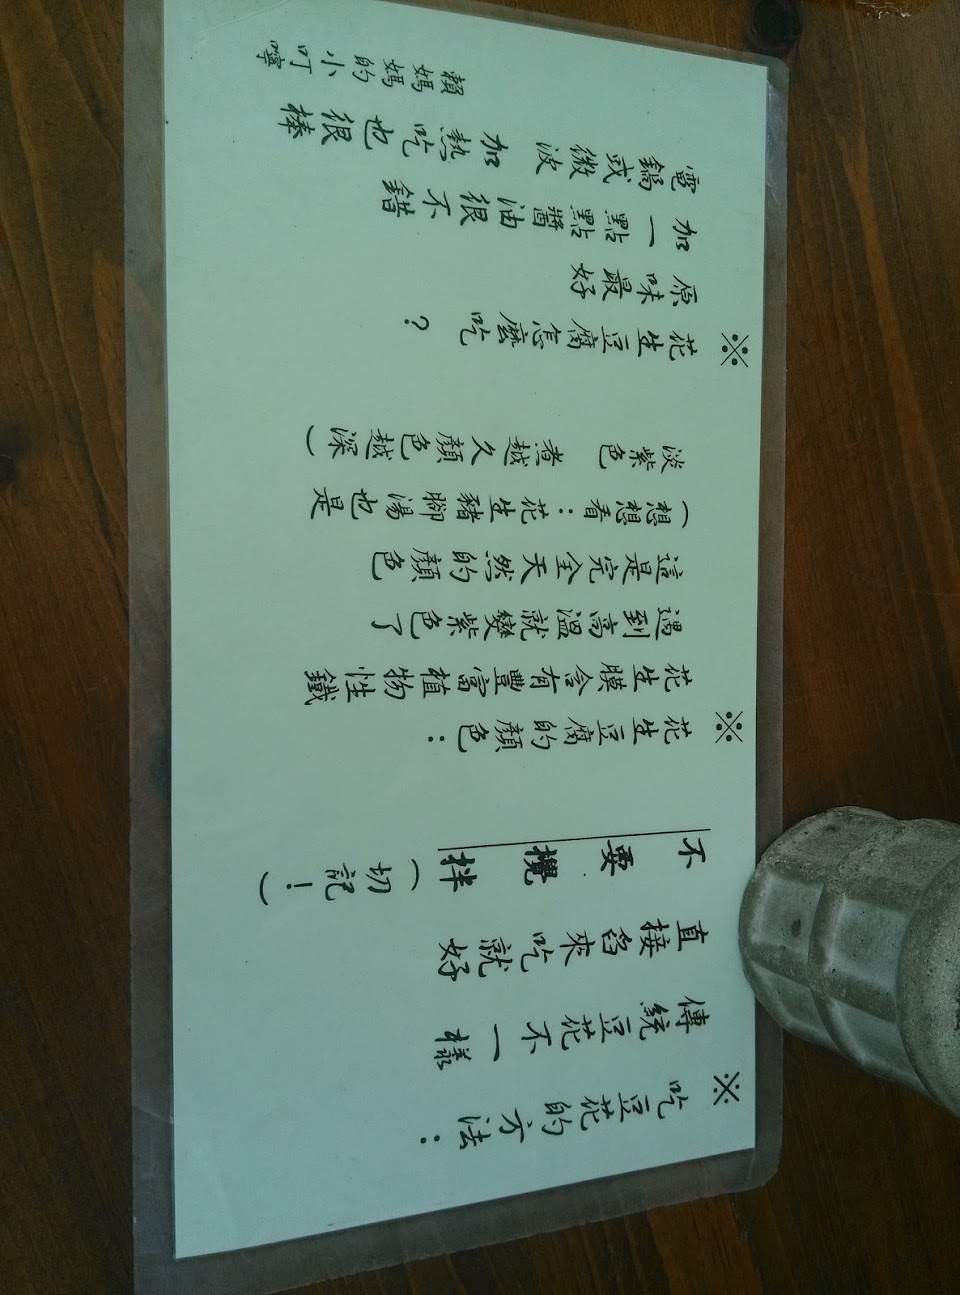 ※吃豆花的方法:
傳統豆花不一樣
直接舀來吃就好
不要攪拌(切記!)
※花生豆腐的顏色:
花生膜含有豐富植物性鐵
遇到高溫就變紫色了
這是完全天然的顏色
(想想看:花生豬腳湯也是
淡紫色 煮越久顏色越深)
※花生豆腐怎麼吃?
原味最好
加一點點醬油很不錯
電鍋或微波 加熱吃也很棒
賴媽媽的小叮嚀